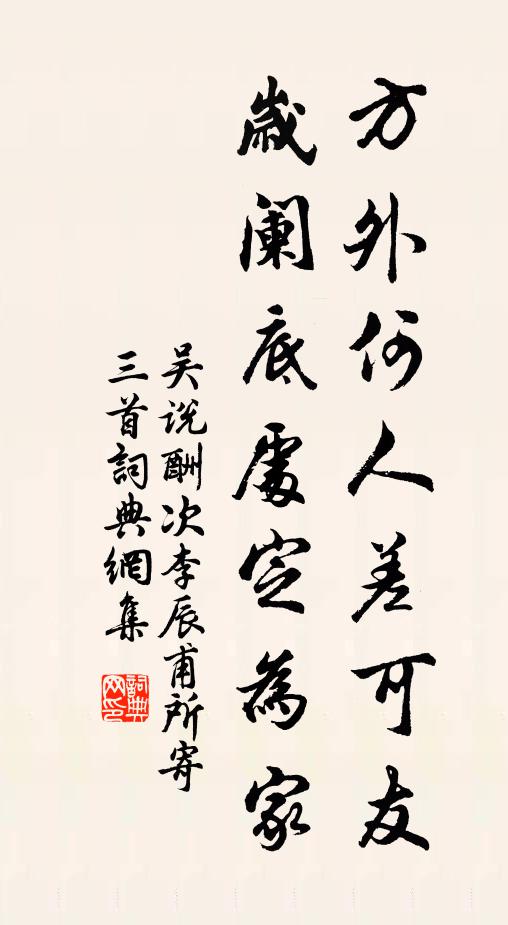 方外何人差可友
歲阑底處定為家
吴说酬次李辰甫所寄
三首詞典網集
詞典网印